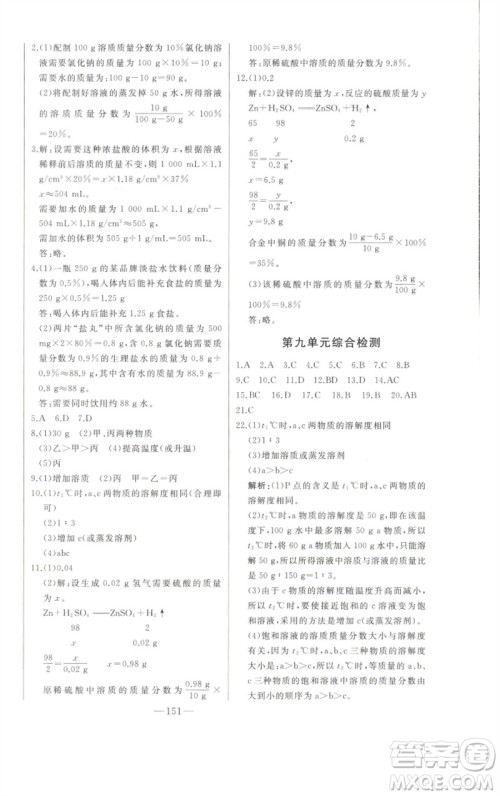 2.(1)配制 100 g 溶质质量分数为 10%氯化钠溶
液需要氯化钠的质量为 100 g×10%=10 g。
需要水的质量=100 g-10 g=90 g。
(2)将配制好的溶液蒸发掉 50 g 水,所得溶液
的溶质质量分数为 10 g/(100 g-50 g)×100%
=20%。
3.解:设需要这种浓盐酸的体积为 x,根据溶液
稀释前后溶质的质量不变,则 x×1.18
g/cm³×37%=1 000 mL×1.1
g/cm³×20%
x≈504 mL。
需要加水的质量为 1 000 mL×1.1
需要加水的体积为 505 g÷1 g/mL=505 mL。
答:略。
4.(1)一瓶 250 g 的某品牌淡盐水饮料(质量分
数为 0.5%),喝入体内后能补充食盐的质量为
250 g×0.5%≈1 g。
答:喝入体内后能补充 1 g 食盐。
(2)两片“盐丸”中所含氯化钠的质量为 500
mg×2×80%=800 mg=0.8 g。
800 mg 氯化钠配制 0.9%的生理盐水的质量
答:需要同时饮用约 88 g 水。
5.A 6.D 7.D
8.(1)30 g (2)甲、丙两种物质
(3)乙>甲>丙 (4)提高温度(或升温)
(5)丙
9.(1)增加溶质 (2)丙 (3)甲
10.(1)t₁℃时,a、c 两物质的溶解度相等(合理即
可)
(2)1∶3
(3)增加溶质或蒸发溶剂
(4)abc
11.(1)0.04
(2)解:设生成 0.02 g 氢气需要硫酸的质量
为 x。
Zn+H₂SO₄══ZnSO₄+H₂↑
98 2
x 0.02 g
98/2=x/0.02 g x=0.98 g
原稀硫酸中溶质的质量分数为 0.98 g/10 g×
100%=9.8%
答:原稀硫酸中溶质的质量分数为 9.8%。
12.(1)0.2
(2)解:设锌的质量为 x,硫酸的质量为 y
Zn+H₂SO₄══ZnSO₄+H₂↑
65 98 2
x y 0.2 g
65/2=x/0.2 g,
x=6.5 g
98/2=y/0.2 g,
y=9.8 g
合金中铜的质量分数为 (10 g-6.5 g)/10 g×100%
=35%。
(3)该稀硫酸中溶质的质量分数为 9.8 g/100 g×
100%=9.8%
答:略
第九单元综合检测
1.A 2.C 3.A 4.D 5.B 6.C 7.D 8.D
9.C 10.C 11.D 12.BD 13.AD 14.C
15.BC 16.C 17.C 18.B 19.C 20.C
21.C
22.(1)t₁℃时,a、c 两物质的溶解度相同
(2)1∶3
(3)增加溶质或蒸发溶剂
(4)a>b>c
解析:(1)P 点的含义是 t₁℃时,a、c 两物质的溶
解度相同。
(2)t₂℃时,a 物质的溶解度是 50 g,所以
t₂℃时,100 g 水中最多溶解 50 g a 物质,
将 60 g a 物质加入到 100 g 水中充分溶解
后,溶质与溶剂的质量比是 50 g∶150 g=1∶3。
(3)由于 c 物质的溶解度随温度升高而减小,
所以 t₁℃时,要使接近饱和的 c 溶液变成饱
和溶液,可采取的一种措施是增加溶质
或蒸发溶剂。
(4)饱和溶液的溶质质量分数大小与溶解度
有关。t₂℃时,a、b、c 三种物质的溶解度
是 a>b>c,所以 t₂℃时,a、b、c 三种物质的
饱和溶液中溶质的质量分数由
大到小的顺序为 a>b>c。
— 151 —
答案圈
MXQE.COM